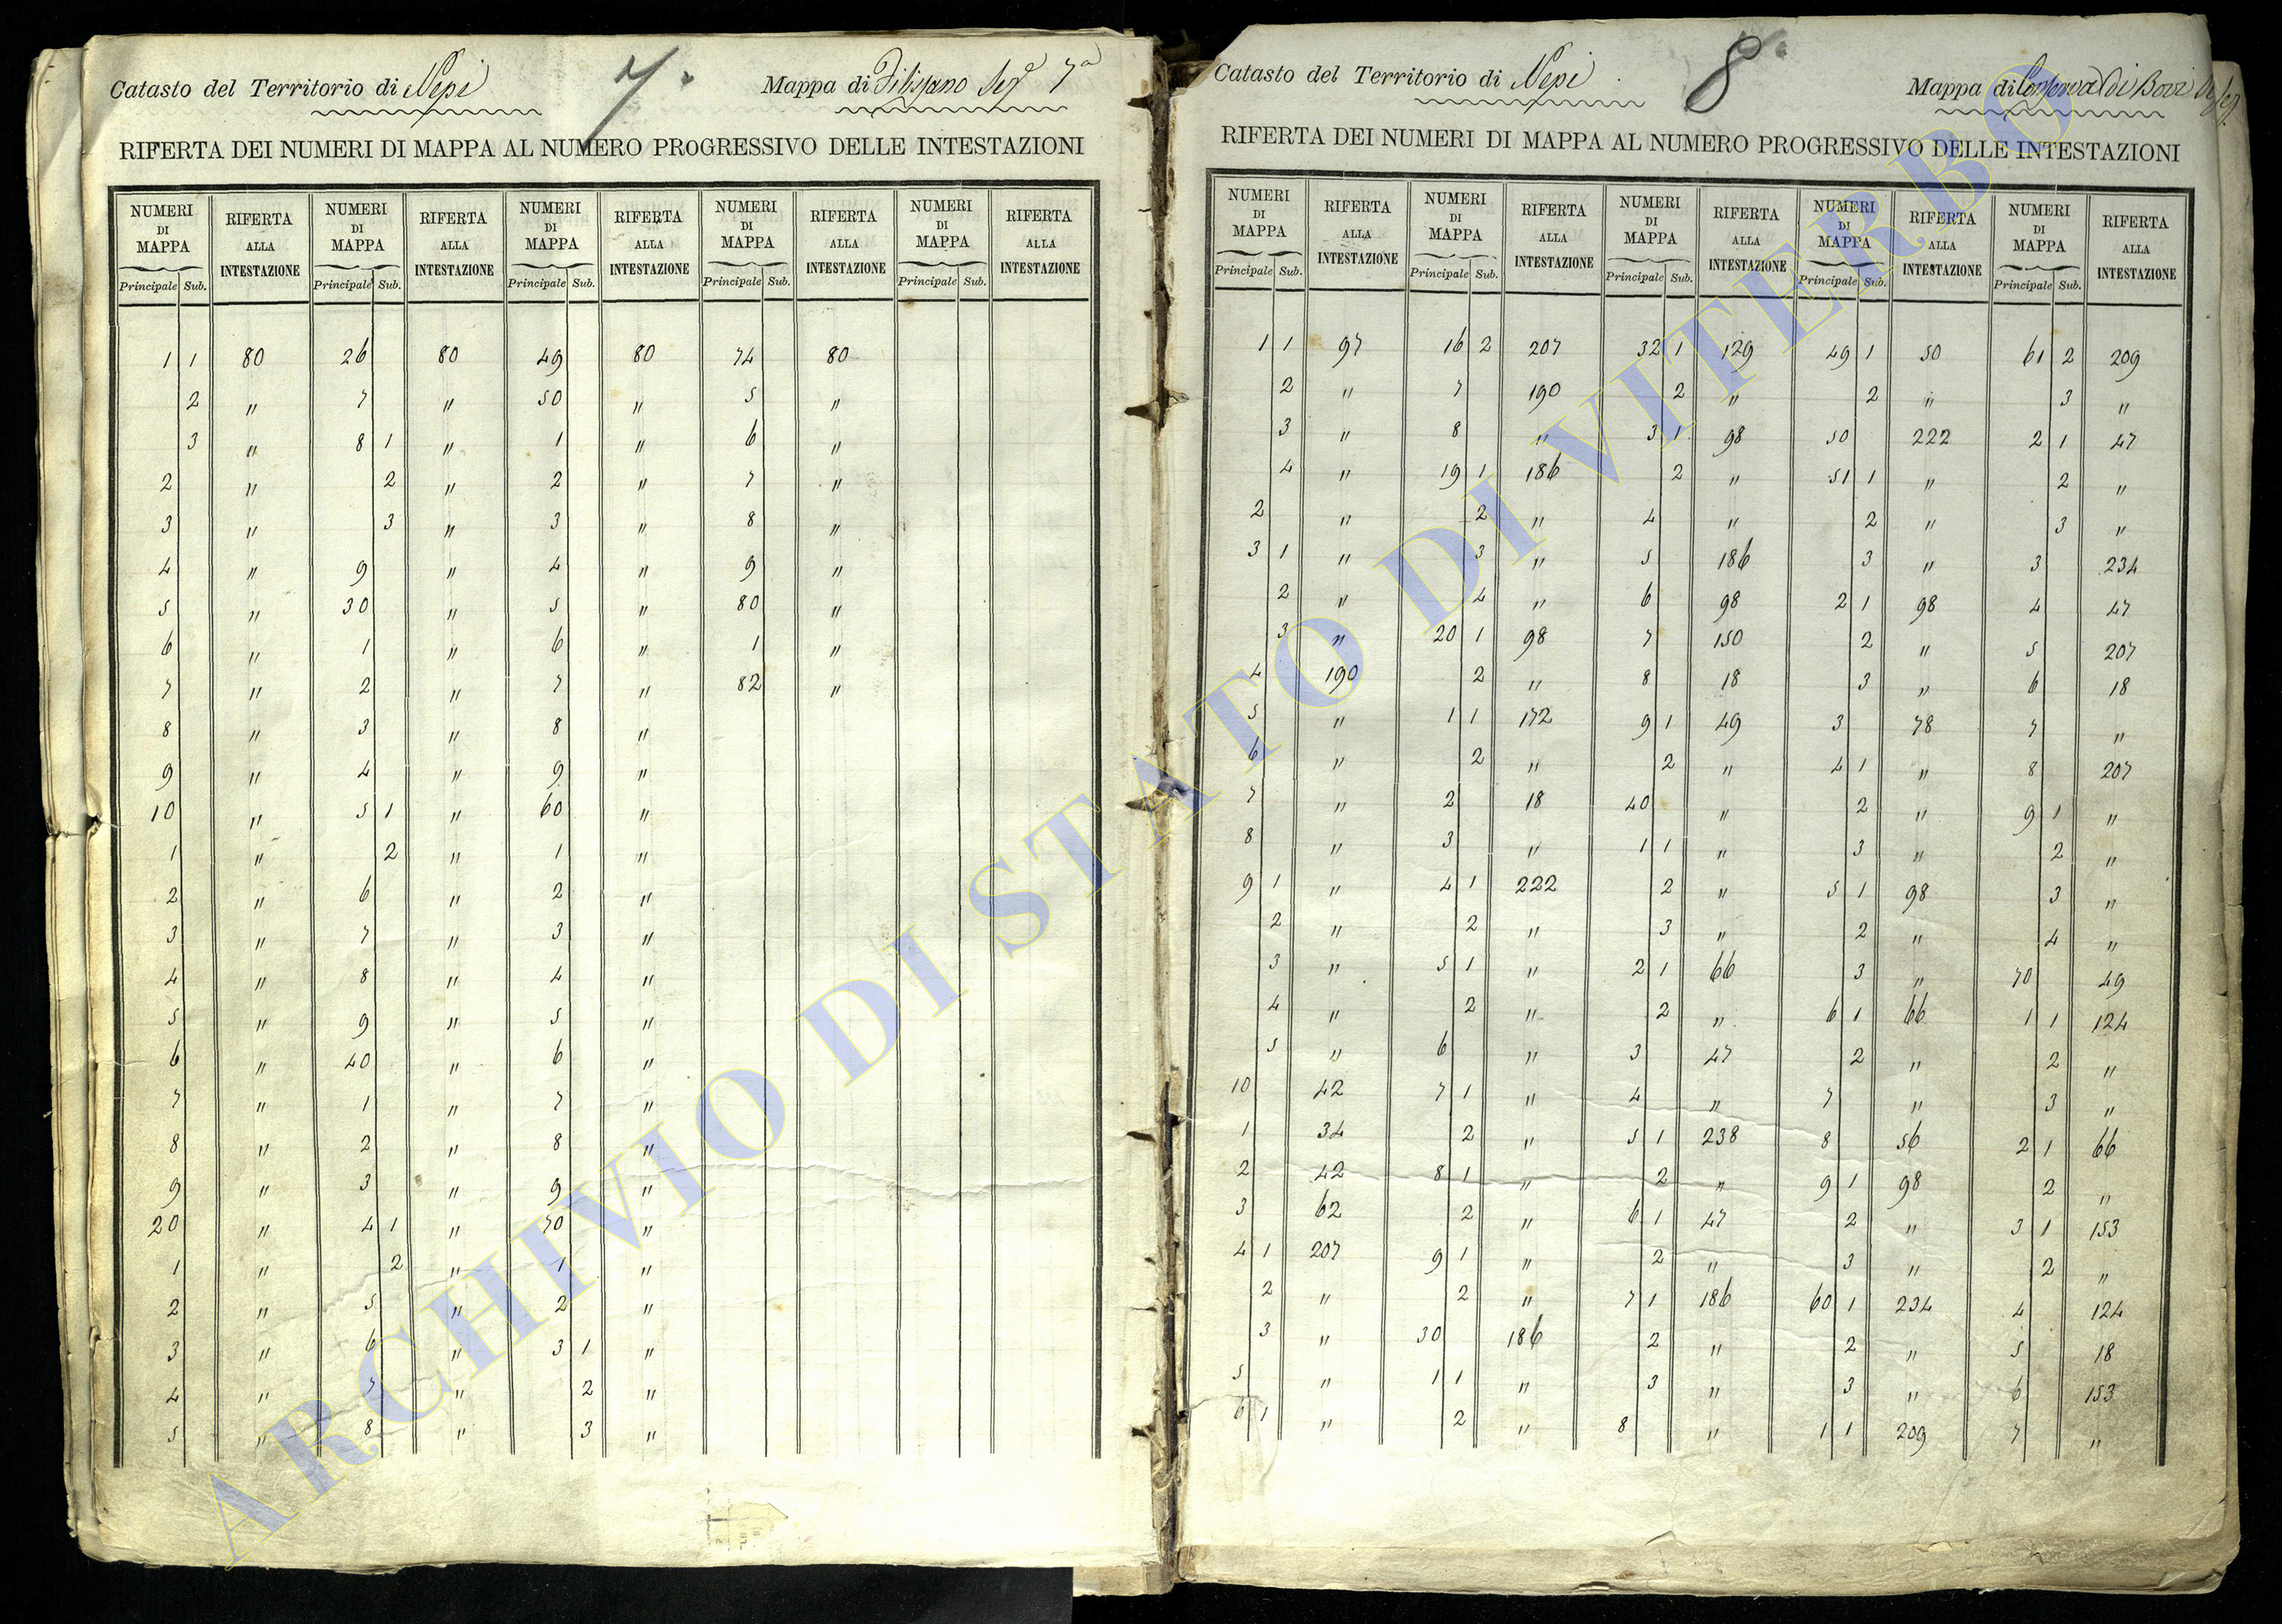 Catasto del Territorio di Nepi 7. Mappa di Filissano Sez.e 7a
RIFERTA DEI NUMERI DI MAPPA AL NUMERO PROGRESSIVO DELLE INTESTAZIONI
NUMERI DI MAPPA RIFERTA ALLA INTESTAZIONE NUMERI DI MAPPA RIFERTA ALLA INTESTAZIONE NUMERI DI MAPPA RIFERTA ALLA INTESTAZIONE NUMERI DI MAPPA RIFERTA ALLA INTESTAZIONE NUMERI DI MAPPA RIFERTA ALLA INTESTAZIONE
Principale Sub. Principale Sub. Principale Sub. Principale Sub. Principale Sub.
1 1 80 26 80 49 80 74 80
2 " 7 " 50 " 5 "
3 " 8 1 " 1 " 6 "
2 " 2 " 2 " 7 "
3 " 3 " 3 " 8 "
4 " 9 " 4 " 9 "
5 " 30 " 5 " 80 "
6 " 1 " 6 " 1 "
7 " 2 " 7 " 82 "
8 " 3 " 8 "
9 " 4 " 9 "
10 " 5 1 " 60 "
1 " 2 " 1 "
2 " 6 " 2 "
3 " 7 " 3 "
4 " 8 " 4 "
5 " 9 " 5 "
6 " 40 " 6 "
7 " 1 " 7 "
8 " 2 " 8 "
9 " 3 " 9 "
20 " 4 1 " 70 "
1 " 2 " 1 "
2 " 5 " 2 "
3 " 6 " 3 1 "
4 " 7 " 2 "
5 " 8 " 3 "
Catasto del Territorio di Nepi 8. Mappa di Conserva di Bovi
RIFERTA DEI NUMERI DI MAPPA AL NUMERO PROGRESSIVO DELLE INTESTAZIONI
NUMERI DI MAPPA RIFERTA ALLA INTESTAZIONE NUMERI DI MAPPA RIFERTA ALLA INTESTAZIONE NUMERI DI MAPPA RIFERTA ALLA INTESTAZIONE NUMERI DI MAPPA RIFERTA ALLA INTESTAZIONE NUMERI DI MAPPA RIFERTA ALLA INTESTAZIONE
Principale Sub. Principale Sub. Principale Sub. Principale Sub. Principale Sub.
1 1 97 16 2 207 32 1 129 49 1 50 61 2 209
2 " 7 190 2 " 2 " 3 "
3 " 8 " 3 1 98 50 222 2 1 47
4 " 19 1 186 2 " 51 1 " 2 "
2 " 2 " 4 " 2 " 3 "
3 1 " 3 " 5 186 3 " 3 234
2 " 4 " 6 98 2 1 98 4 47
3 " 20 1 98 7 150 2 " 5 207
4 190 2 " 8 18 3 " 6 18
5 " 1 1 172 9 1 49 3 78 7 "
6 " 2 " 2 " 4 1 " 8 207
7 " 2 18 40 " 2 " 9 1 "
8 " 3 " 1 1 " 3 " 2 "
9 1 " 4 1 222 2 " 5 1 98 3 "
2 " 2 " 3 " 2 " 4 "
3 " 5 1 " 2 1 66 3 " 70 49
4 " 2 " 2 " 6 1 66 1 1 124
5 " 6 " 3 47 2 " 2 "
10 42 7 1 " 4 " 7 " 3 "
1 34 2 " 5 1 238 8 56 2 1 66
2 42 8 1 " 2 " 9 1 98 2 "
3 62 2 " 6 1 47 2 " 3 1 153
4 1 207 9 1 " 2 " 3 " 2 "
2 " 2 " 7 1 186 60 1 234 4 124
3 " 30 186 2 " 2 " 5 18
5 " 1 1 " 3 " 3 " 6 153
6 1 " 2 " 8 " 1 1 209 7 "
ARCHIVIO DI STATO DI VITERBO